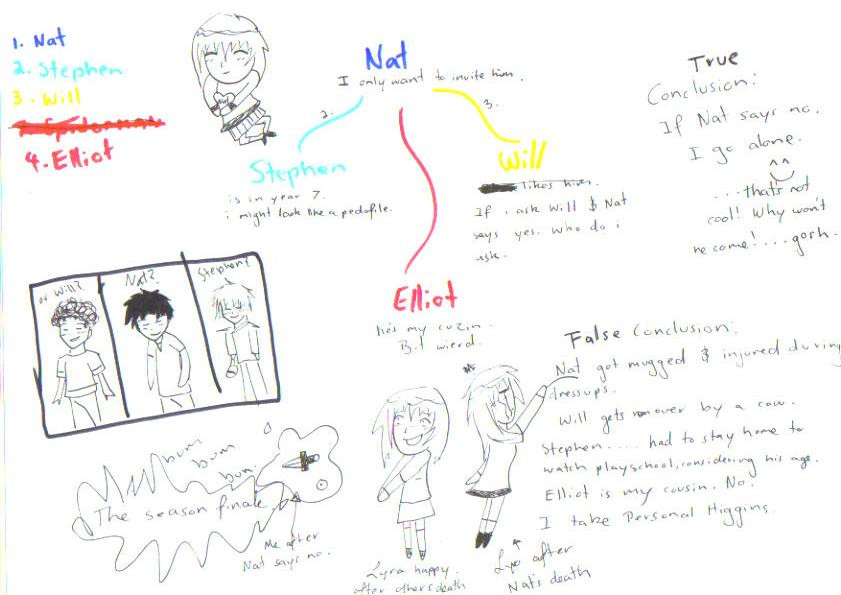 1. Nat
2. Stephen
3. Will
4. Elliot
Nat
I only want to invite him.
2.
3.
Stephen
is in year 7.
i might look like a pedofile.
Will
likes him.
If i ask Will & Nat
says yes. Who do i
ask.
Elliot
he's my cuzin.
Bit wierd.
True
Conclusion:
If Nat says no.
I go alone.
^^
...that's not
cool! Why won't
he come!....gosh.
or Will?
Nat?
Stephen?
bum
bum
bum.
The season finale.
Me after
Nat says no.
Lyra happy
after others death
after
Nat's death
False Conclusion:
Nat got mugged & injured during
dressups.
Will gets over by a cow.
Stephen..... had to stay home to
watch playschool, considering his age.
Elliot is my cousin. No.
I take Personal Higgins.